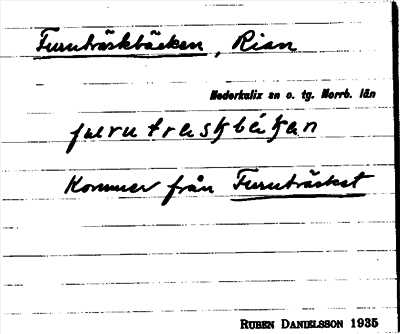 Furuträskbäcken, Rian
Nederkalix sn o. tg. Norrb. län
furutraskbäkan
Kommer från Furuträsket
RUBEN DANIELSSON 1935